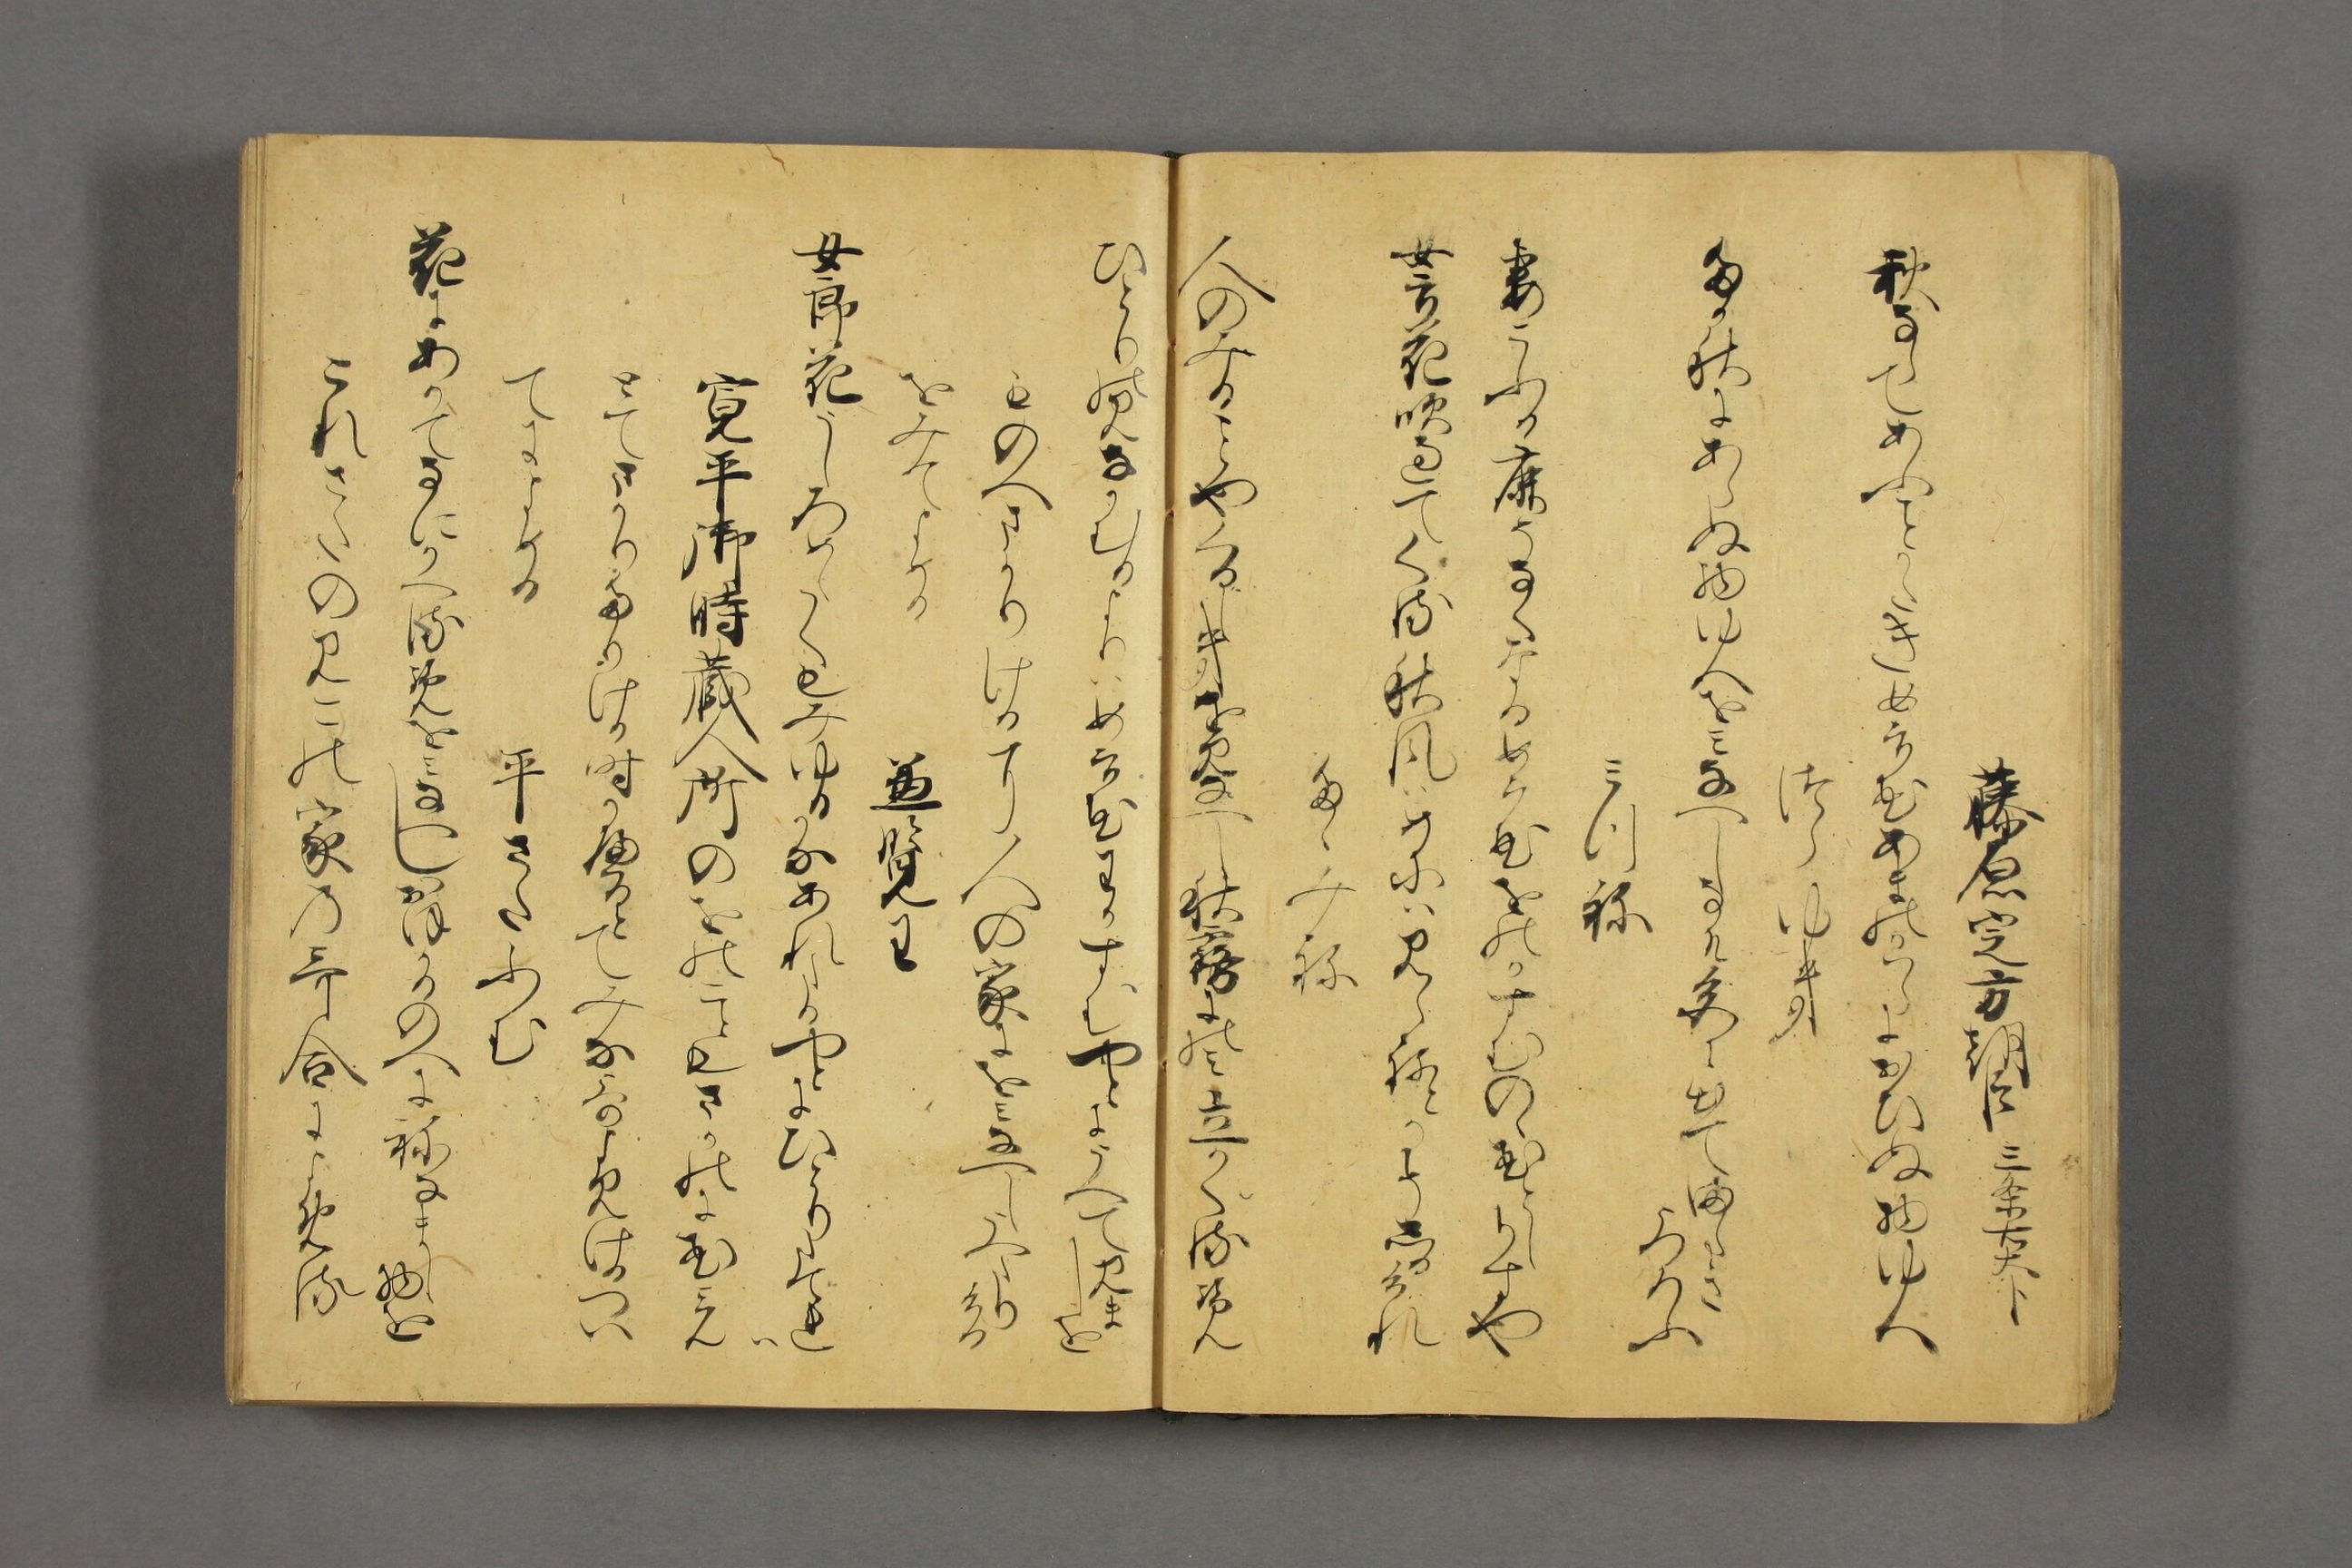 藤原定方朝臣 三条右大臣
秋ならてあふことかたき女郎花あまのかはらにおひぬ物ゆへ
つらゆき
たか秋にあらぬ物ゆへをみなへしなそ色に出てまたき
うつろふ
みつね
妻こふる鹿そなくなる女郎花をのかすむのゝ花としらすや
女郎花吹過てくる秋風はめには見えねとかこそしるけれ
たゝみね
人のみることやくるしきをみなへし秋霧にのみ立かくるらん
ひとりのみなかむるよりは女郎花わかすむやとにうへて見ましを
ものへまかりけるに人の家にをみなへしうへたりける
をみてよめる
兼覧王
女郎花うしろめたくもみゆるかなあれたるやとにひとりたてれは
寛平御時蔵人所のをのこともさかのに花みん
とてまかりたりける時かへるとてみな哥よみけるつい
てによめる
平さたふむ
花にあかてなにかへるらんをみなへしおほかるのへにねなまし物を
これさたのみこの家の哥合によめる